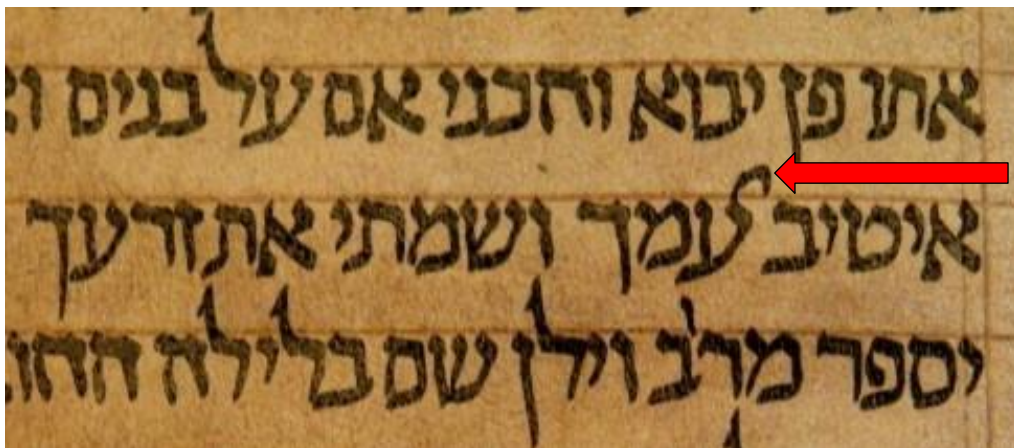 אתו פן יבוא והכני אם על בנים
איטיב עמך ושמתי את זרעך
יספר מרב וילן שם בלילה